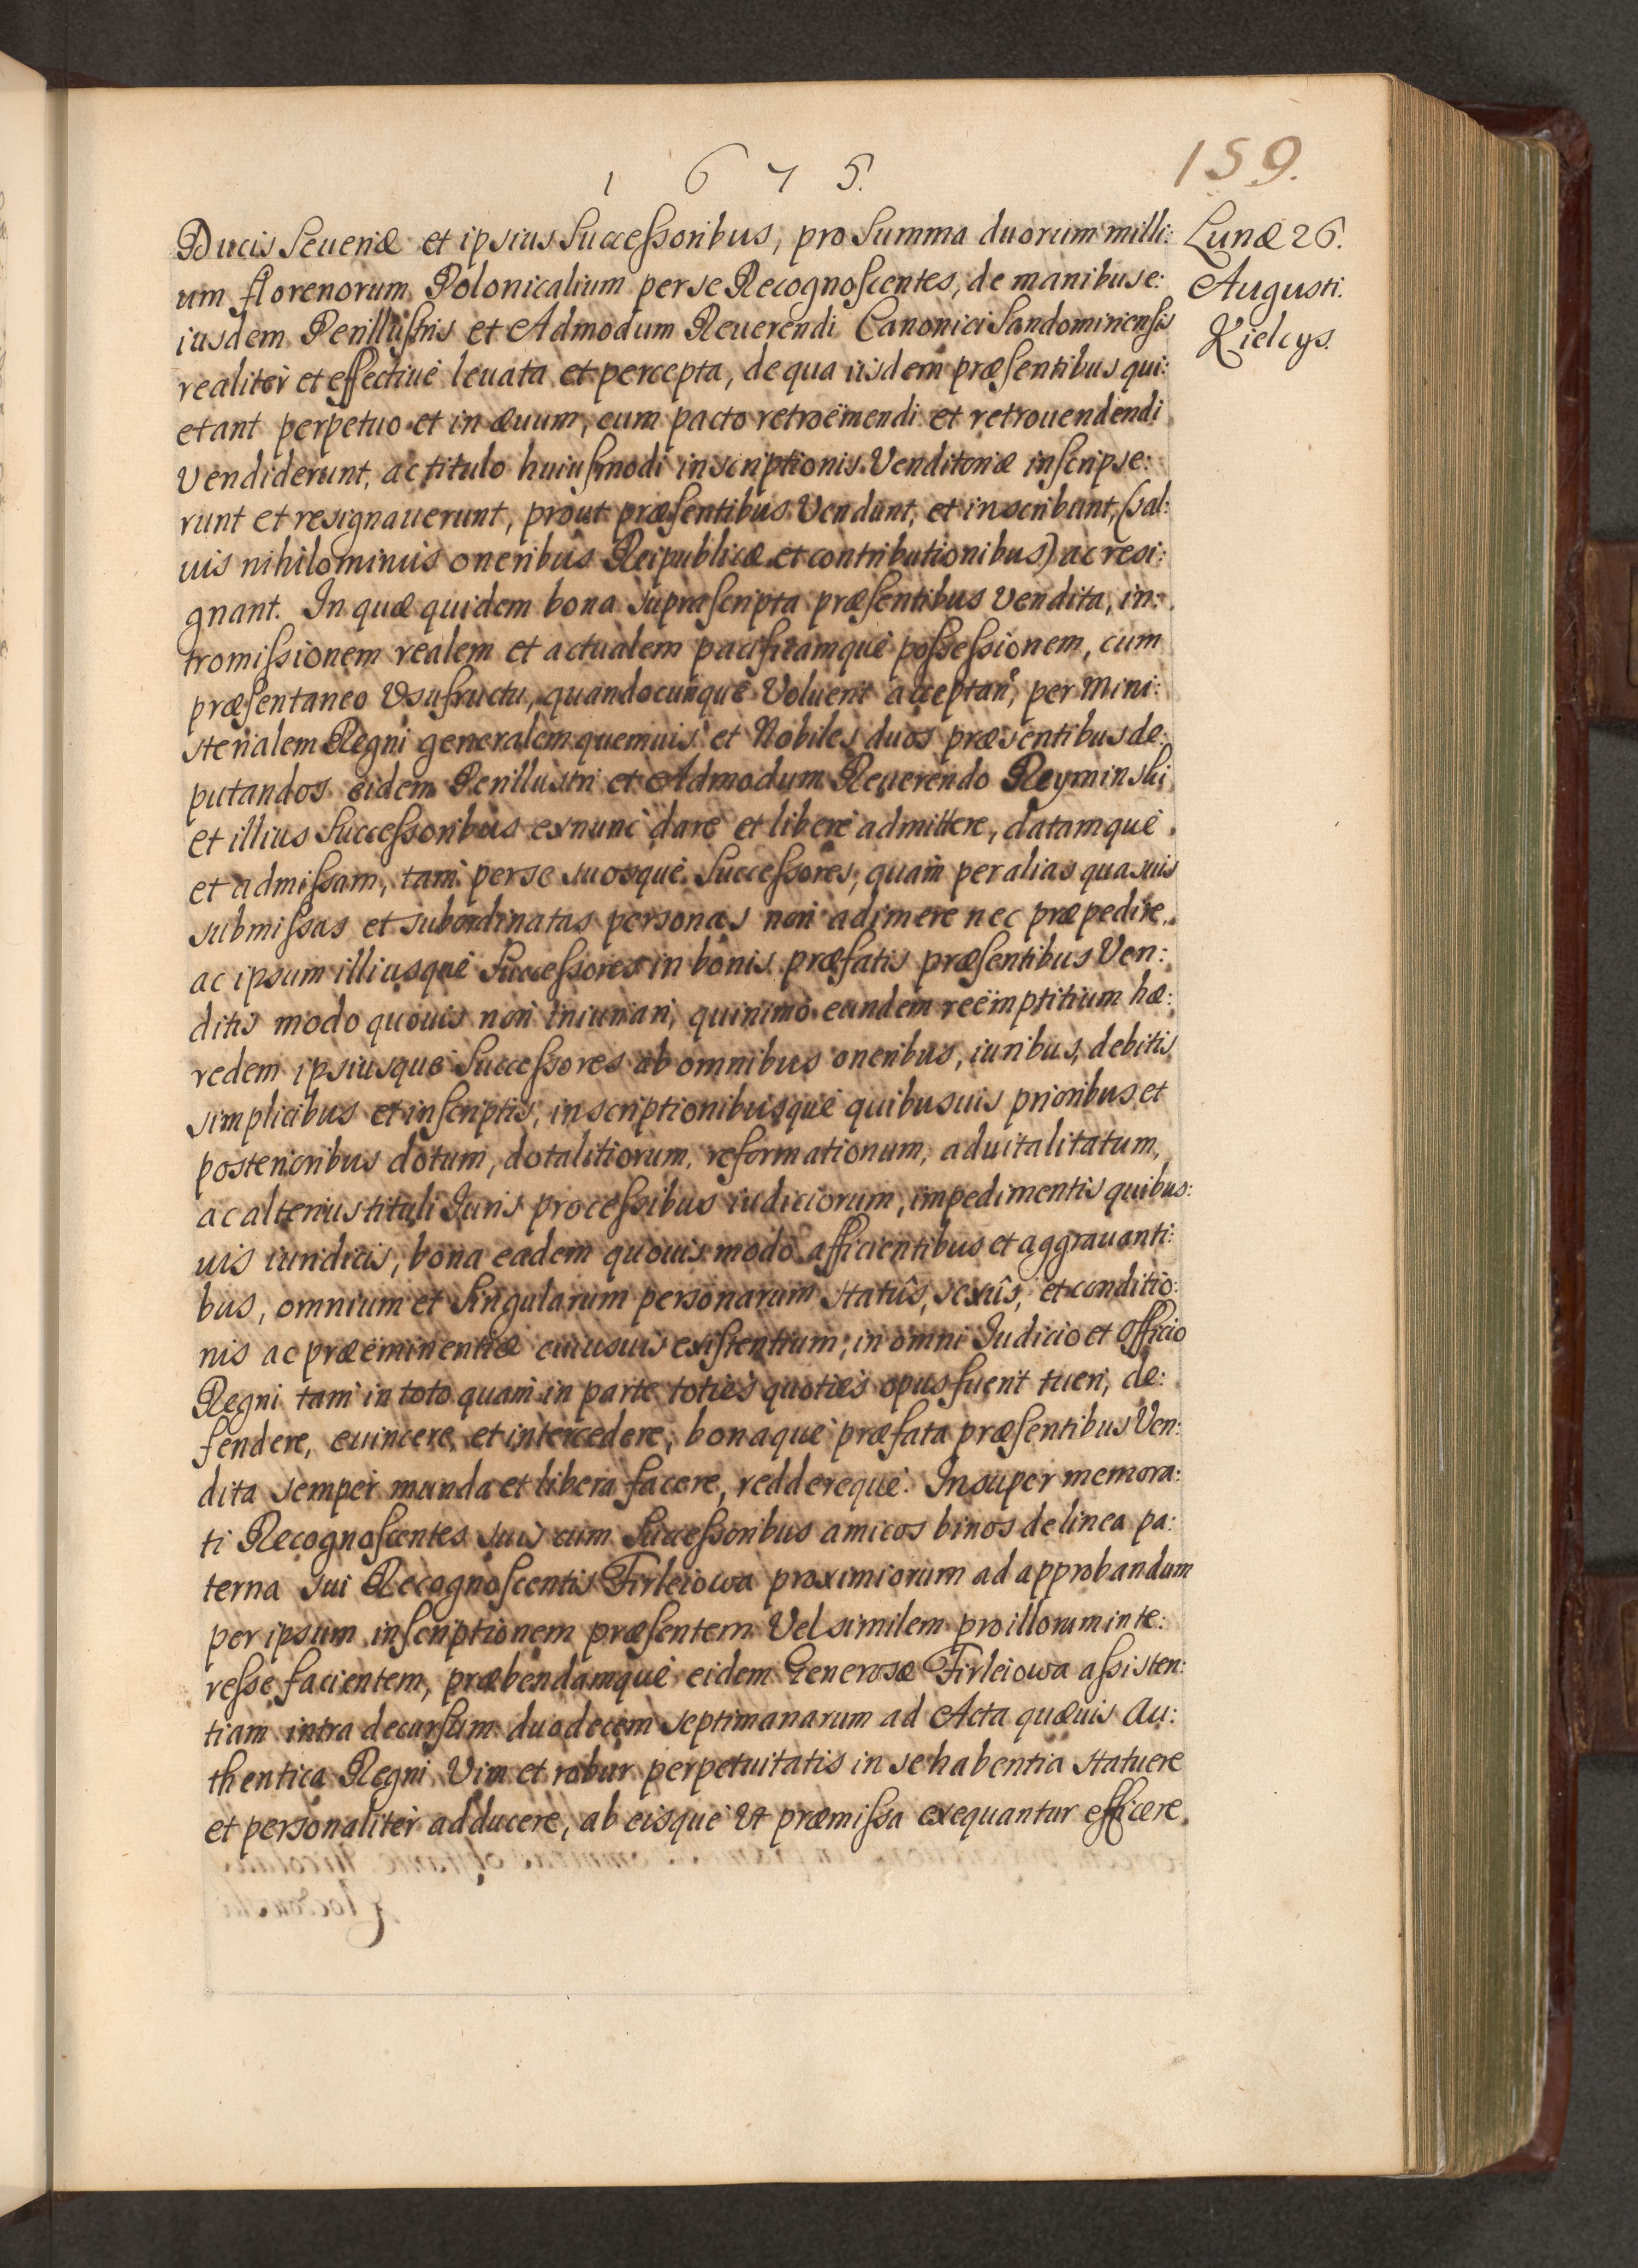 1 6 7 5.
159.
Lunæ 26.
Augusti.
Kielcys.
Ducis Seueriæ et ipsius Successoribus, pro Summa duorum milli:
um florenorum Polonicalium per se Recognoscentes, de manibus e:
iusdem Perillustris et Admodum Reuerendi Canonici Sandomiriensis
realiter et effectiuè leuata et percepta, de qua iisdem præsentibus qui:
etant perpetuo et in æuum, cum pacto retroëmendi et retrouendendi
Vendiderunt, ac titulo huiusmodi inscriptionis Venditoriæ inscripse:
runt et resignauerunt, prout præsentibus Vendunt, et inscribunt, (sal:
uis nihilominus oneribus Reipublicæ et contributionibus) ac resi:
gnant. In quæ quidem bona suprascripta præsentibus vendita, in:
tromissionem realem et actualem pacificamque possessionem, cum
præsentaneo Vsufructu, quandocunque Voluerit acceptan, per Mini:
sterialem Regni generalem quemuis et Nobiles duos præsentibus de:
putandos eidem Perillustri et Admodum Reuerendo Reyminski
et illius Successoribus ex nunc dare et liberè admittere, datamque
et admissam, tam per se suosque Successores, quam per alias quasuis
submissas et subordinatas personas non adimere nec præpedire,
ac ipsum illiusque Successores in bonis præfatis præsentibus Ven:
ditis modo quouis non iniuriari, quinimo eundem reëmptitium hæ:
redem ipsiusque Successores ab omnibus oneribus, iuribus, debitis
simplicibus et inscriptis, inscriptionibusque quibusuis prioribus et
posterioribus dotum, dotalitiorum, reformationum, aduitalitatum,
ac alterius tituli Iuris processibus iudiciorum, impedimentis quibus:
uis iuridicis, bona eadem quouis modo afficientibus et aggrauanti:
bus, omnium et singularum personarum statûs, sexûs, et conditio:
nis ac præëminentiæ cuiusuis existentium, in omni Iudicio et Officio
Regni tam in toto quam in parte toties quoties opus fuerit tueri, de:
fendere, euincere, et intercedere, bonaque præfata præsentibus Ven:
dita semper munda et libera facere, reddereque. Insuper memora:
ti Recognoscentes suis cum Successoribus amicos binos de linea pa:
terna sui Recognoscentis Firleiowa proximiorum ad approbandum
per ipsum inscriptionem præsentem Vel similem pro illorum inte:
resse facientem, præbendamque eidem Generosæ Firleiowa assisten:
tiam intra decursum duodecem septimanarum ad Acta quæuis Au:
thentica Regni Vim et robur perpetuitatis in se habentia statuere
et personaliter adducere, ab eisque Vt præmissa exequantur efficere.